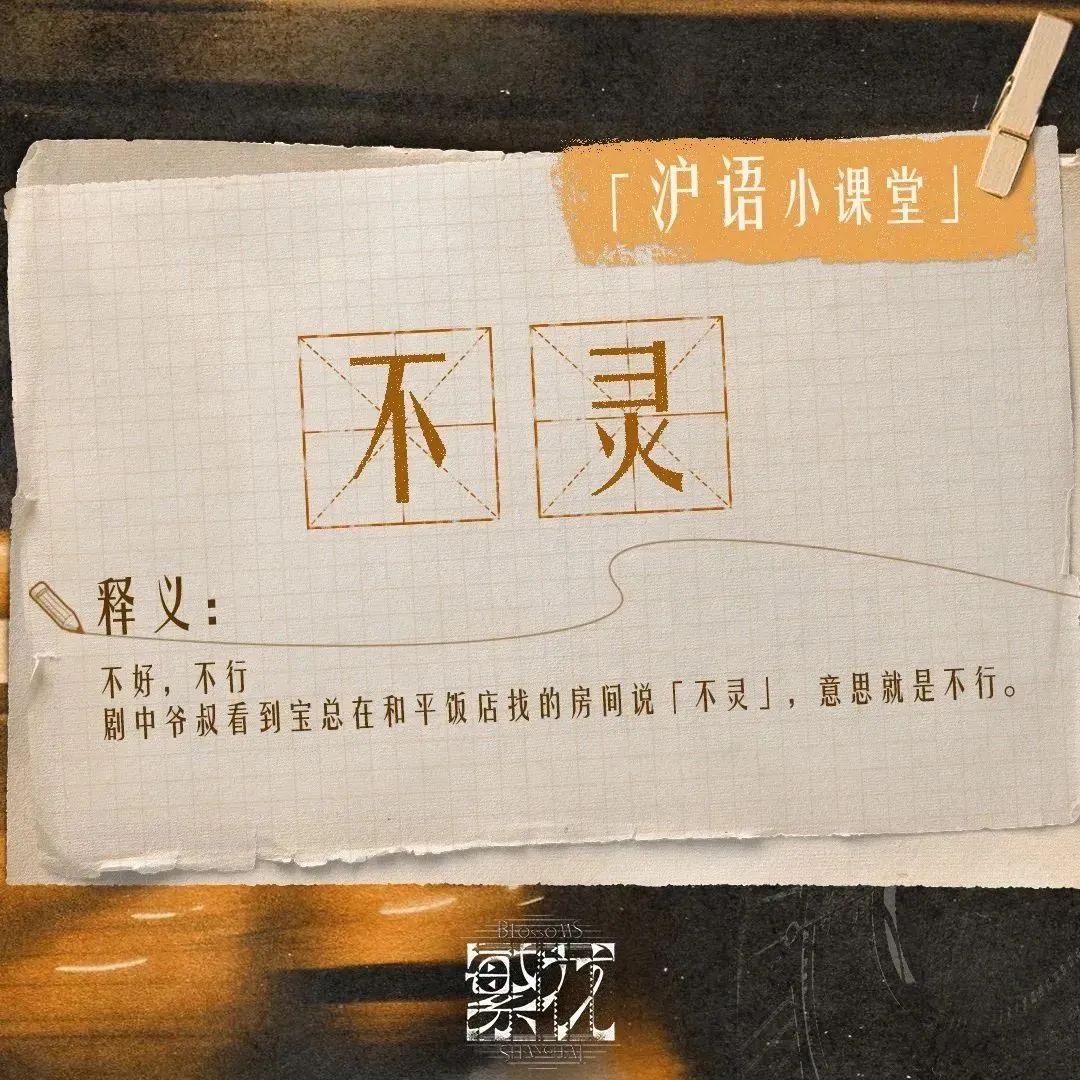 「沪语小课堂」
不灵
释义：
不好，不行
剧中爷叔看到宝总在和平饭店找的房间说「不灵」，意思就是不行。
BLOSSOMS
繁花
SHANGHAI